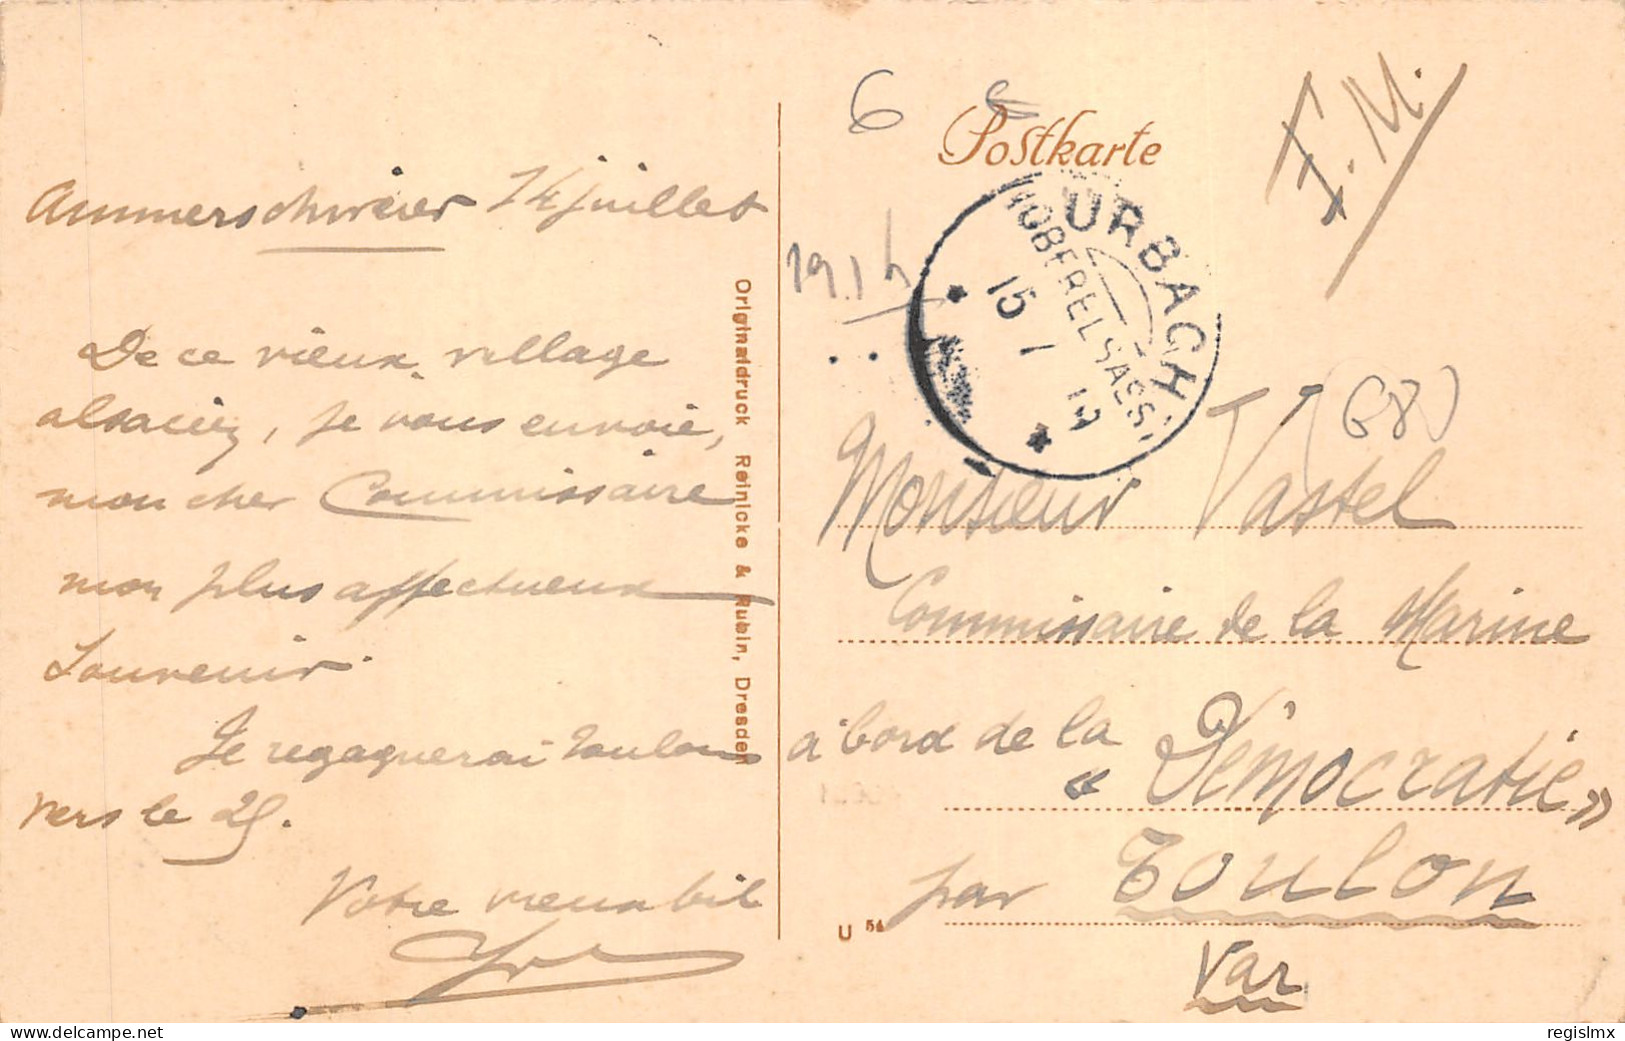 Ammerschweier 14 juillet
De ce vieux village
alsacien, je vous envoie,
mon cher Commissaire
mon plus affectueux
souvenir.
Je regagnerai Toulon
vers le 25.
Votre vieux
Originaldruck Reinicke & Rubin, Dresden
6
Postkarte
F.M.
191
URBACH
(OBERELSASS)
15 7
(68)
Monsieur Vastel
Commissaire de la Marine
à bord de la
« Démocratie »
par Toulon
Var
U 54
delcampe.net
regislmx